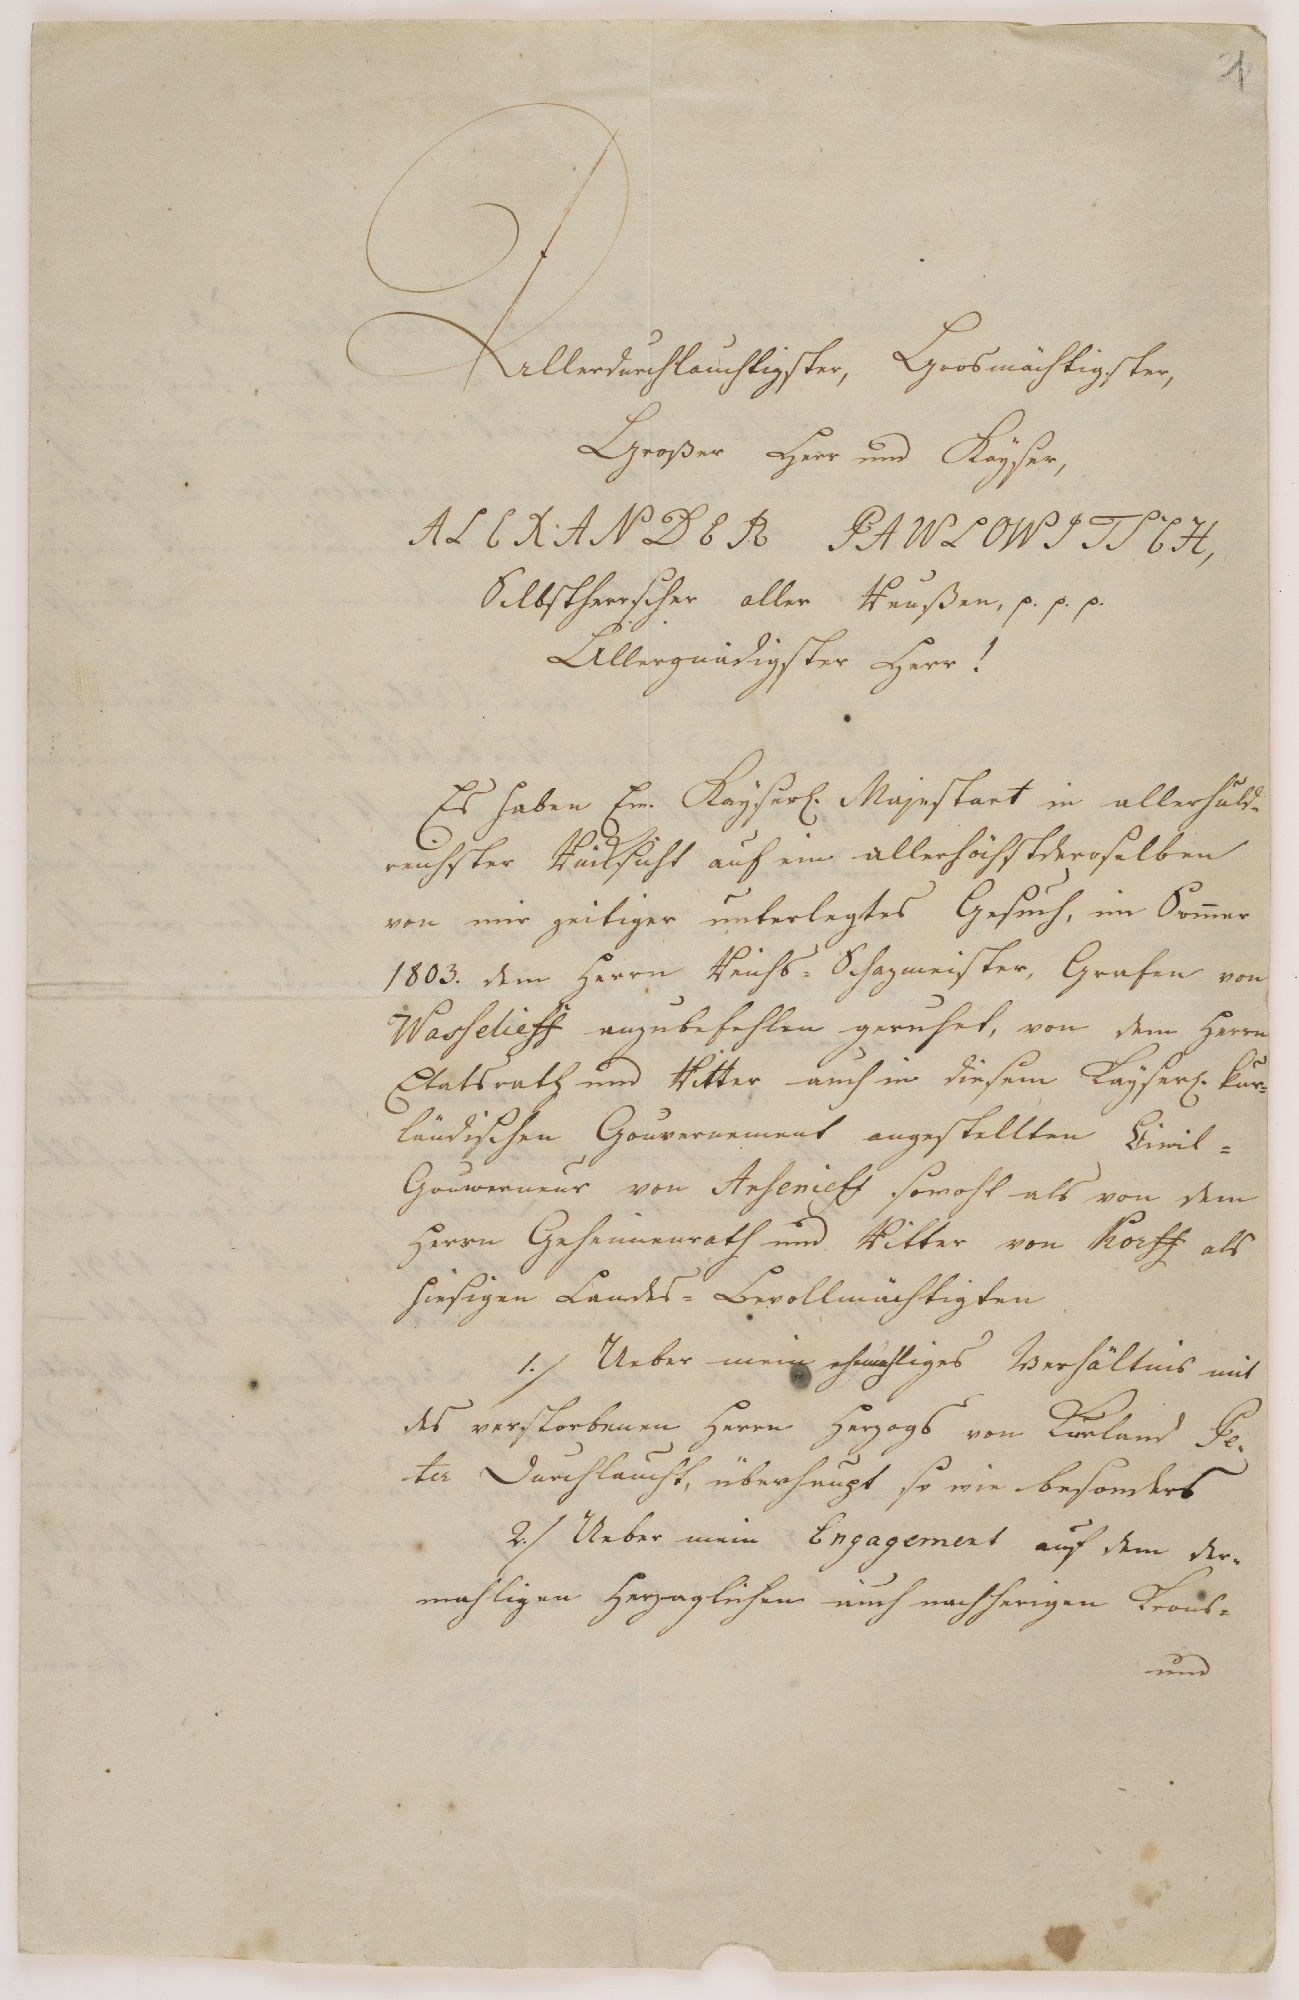 1
Allerdurchlauchtigster, Grosmächtigster,
Großer Herr und Kayser,
ALEXANDER PAWLOWITSCH,
Selbstherrscher aller Reußen, p. p. p.
Allergnädigster Herr!
Es haben Ew. Kayserl. Majestaet in allerhuld-
reichster Rücksicht auf ein allerhöchstderoselben
von mir zeitiger unterlegtes Gesuch, im Sommer
1803. dem Herrn Reichs-Schazmeister, Grafen von
Wassilieff anzubefehlen geruhet, von dem Herrn
Etatsrath und Ritter auch in diesem Kayserl. kur-
ländischen Gouvernement angestellten Civil-
Gouverneur von Arsenieff sowohl als von dem
Herrn Geheimenrath und Ritter von Korff als
hiesigen Landes-Bevollmächtigten
1./ Ueber mein ehmahliges Verhältnis mit
des verstorbenen Herrn Herzogs von Kurland Pe-
ter Durchlaucht, überhaupt so wie besonders
2./ Ueber mein Engagement auf dem der-
mahligen Herzoglichen auch nachherigen Krons-
und